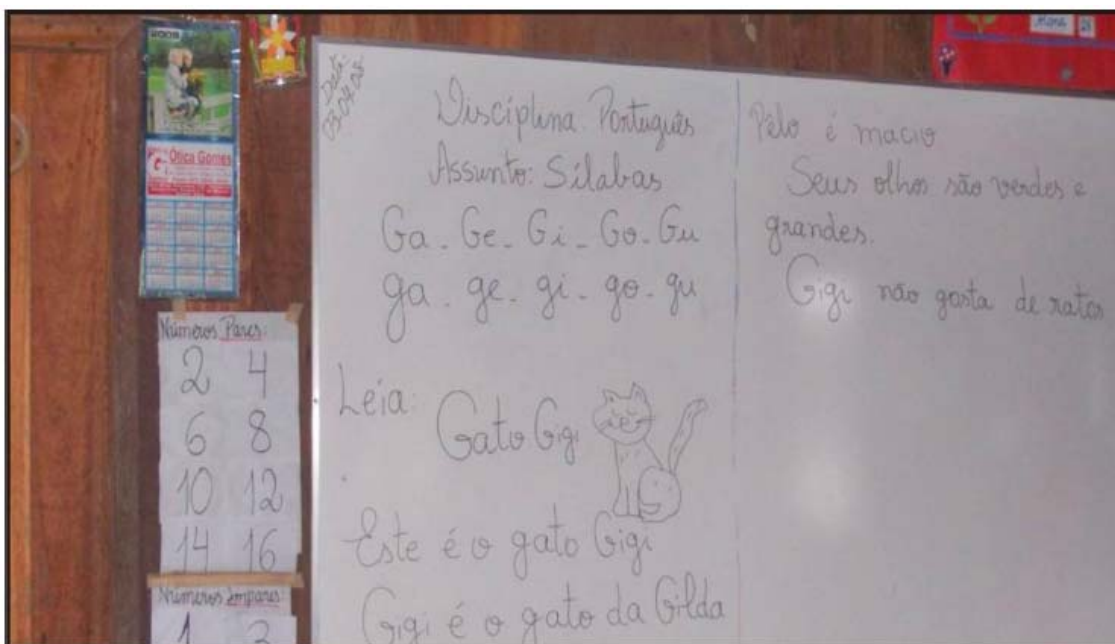 2008
Ótica Gomes
Números Pares:
2 4
6 8
10 12
14 16
Números Impares:
1 3
Data:
03.04.08
Disciplina Português
Assunto: Sílabas
Ga - Ge - Gi - Go - Gu
ga - ge - gi - go - gu
Leia:
Gato Gigi
Este é o gato Gigi
Gigi é o gato da Gilda
Pelo é macio
Seus olhos são verdes e
grandes.
Gigi não gosta de ratos